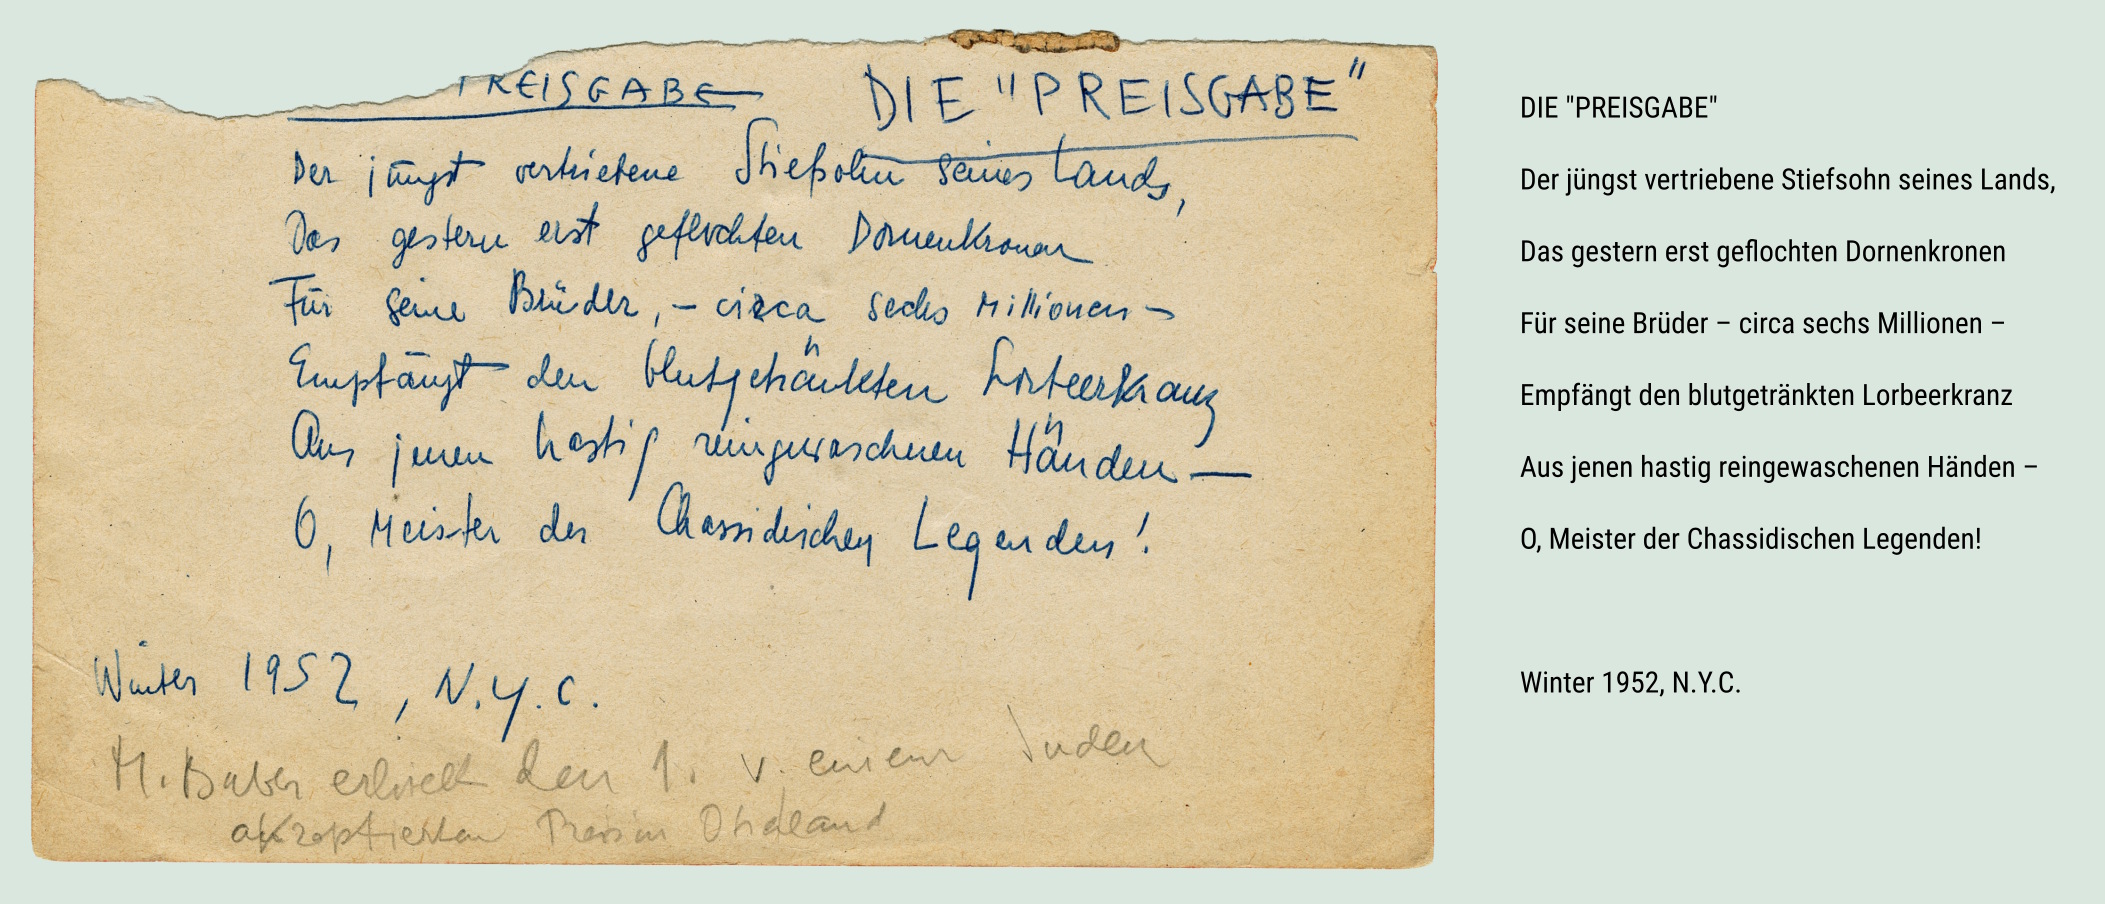 PREISGABE DIE "PREISGABE"
Der jüngst vertriebene Stiefsohn seines Lands,
Das gestern erst geflochten Dornenkronen
Für seine Brüder, – circa sechs Millionen –
Empfängt den blutgetränkten Lorbeerkranz
Aus jenen hastig reingewaschenen Händen –
O, Meister der Chassidischen Legenden!
Winter 1952, N.Y.C.
M. Buber erhielt den 1. v. einem Juden
akzeptierten Preis in
DIE "PREISGABE"
Der jüngst vertriebene Stiefsohn seines Lands,
Das gestern erst geflochten Dornenkronen
Für seine Brüder – circa sechs Millionen –
Empfängt den blutgetränkten Lorbeerkranz
Aus jenen hastig reingewaschenen Händen –
O, Meister der Chassidischen Legenden!
Winter 1952, N.Y.C.